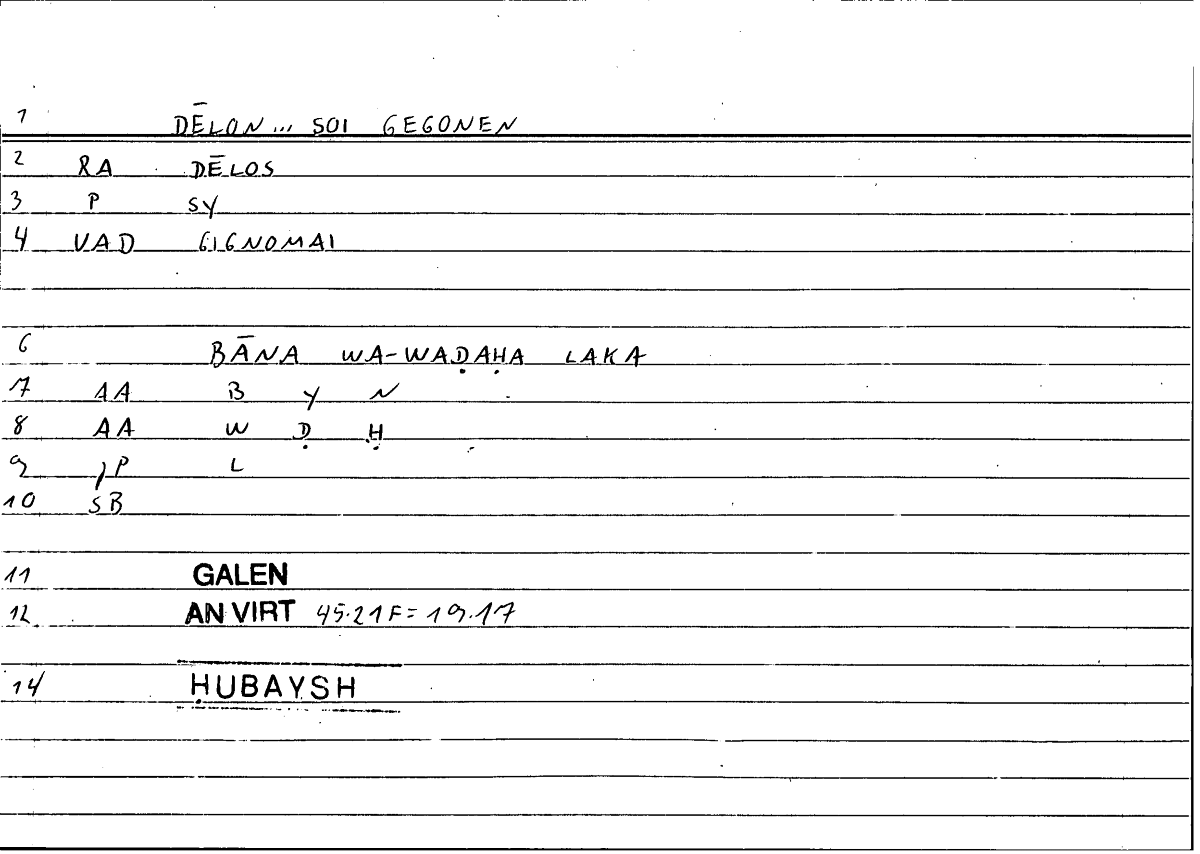 1 DĒLON... SOI GEGONEN
2 RA DĒLOS
3 P SY
4 VAD GIGNOMAI
6 BĀNA WA-WAḌAḤA LAKA
7 AA B Y N
8 AA W Ḍ Ḥ
9 P L
10 SB
11 GALEN
12 AN VIRT 45.21F=19.17
14 ḤUBAYSH